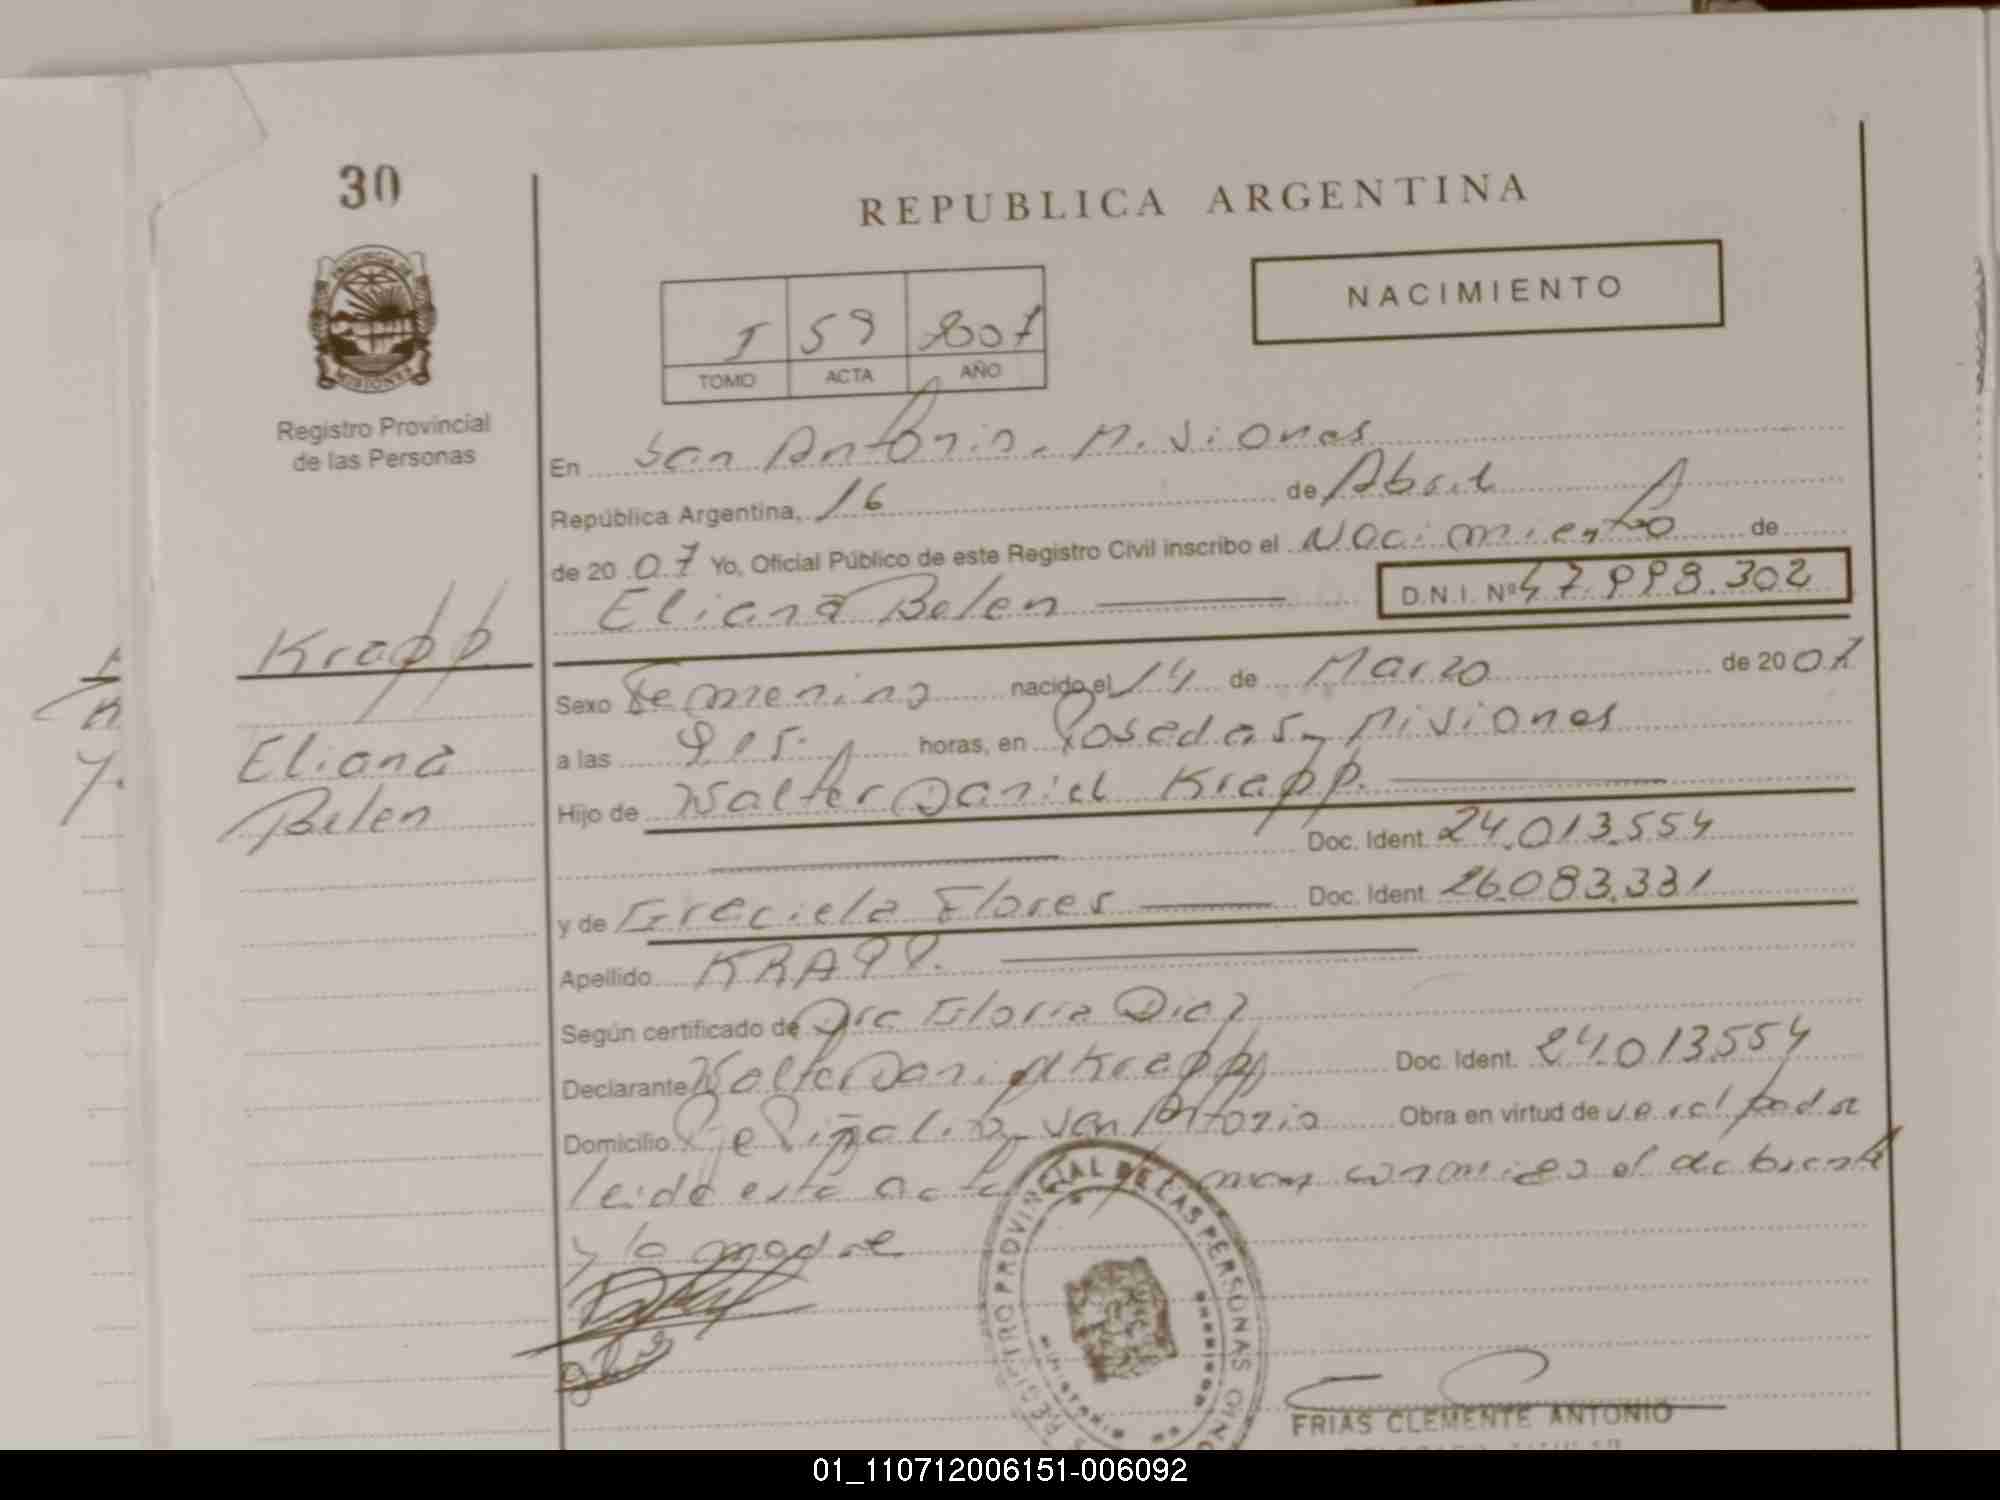 30
REPUBLICA ARGENTINA
PROVINCIA DE MISIONES
Registro Provincial
de las Personas
NACIMIENTO
I 59 2007
TOMO ACTA AÑO
En San Antonio, Misiones
República Argentina, 16 de Abril
de 2007 Yo, Oficial Público de este Registro Civil inscribo el Nacimiento de
Eliana Belen D.N.I. Nº 47.998.302
Krapp
Eliana
Belen
Sexo Femenino nacido el 14 de Marzo de 2007
a las horas, en Posadas, Misiones
Hijo de Walter Daniel Krapp.
Doc. Ident. 24.013.554
y de Graciela Flores Doc. Ident. 26.083.331
Apellido KRAPP.
Según certificado de Dra Gloria Diaz
Declarante Walter Daniel Krapp Doc. Ident. 24.013554
Domicilio San Antonio Obra en virtud de
leida esta acta conmigo el declarante
y la madre
REGISTRO PROVINCIAL DE LAS PERSONAS
MINISTERIO DE
FRIAS CLEMENTE ANTONIO
01_110712006151-006092